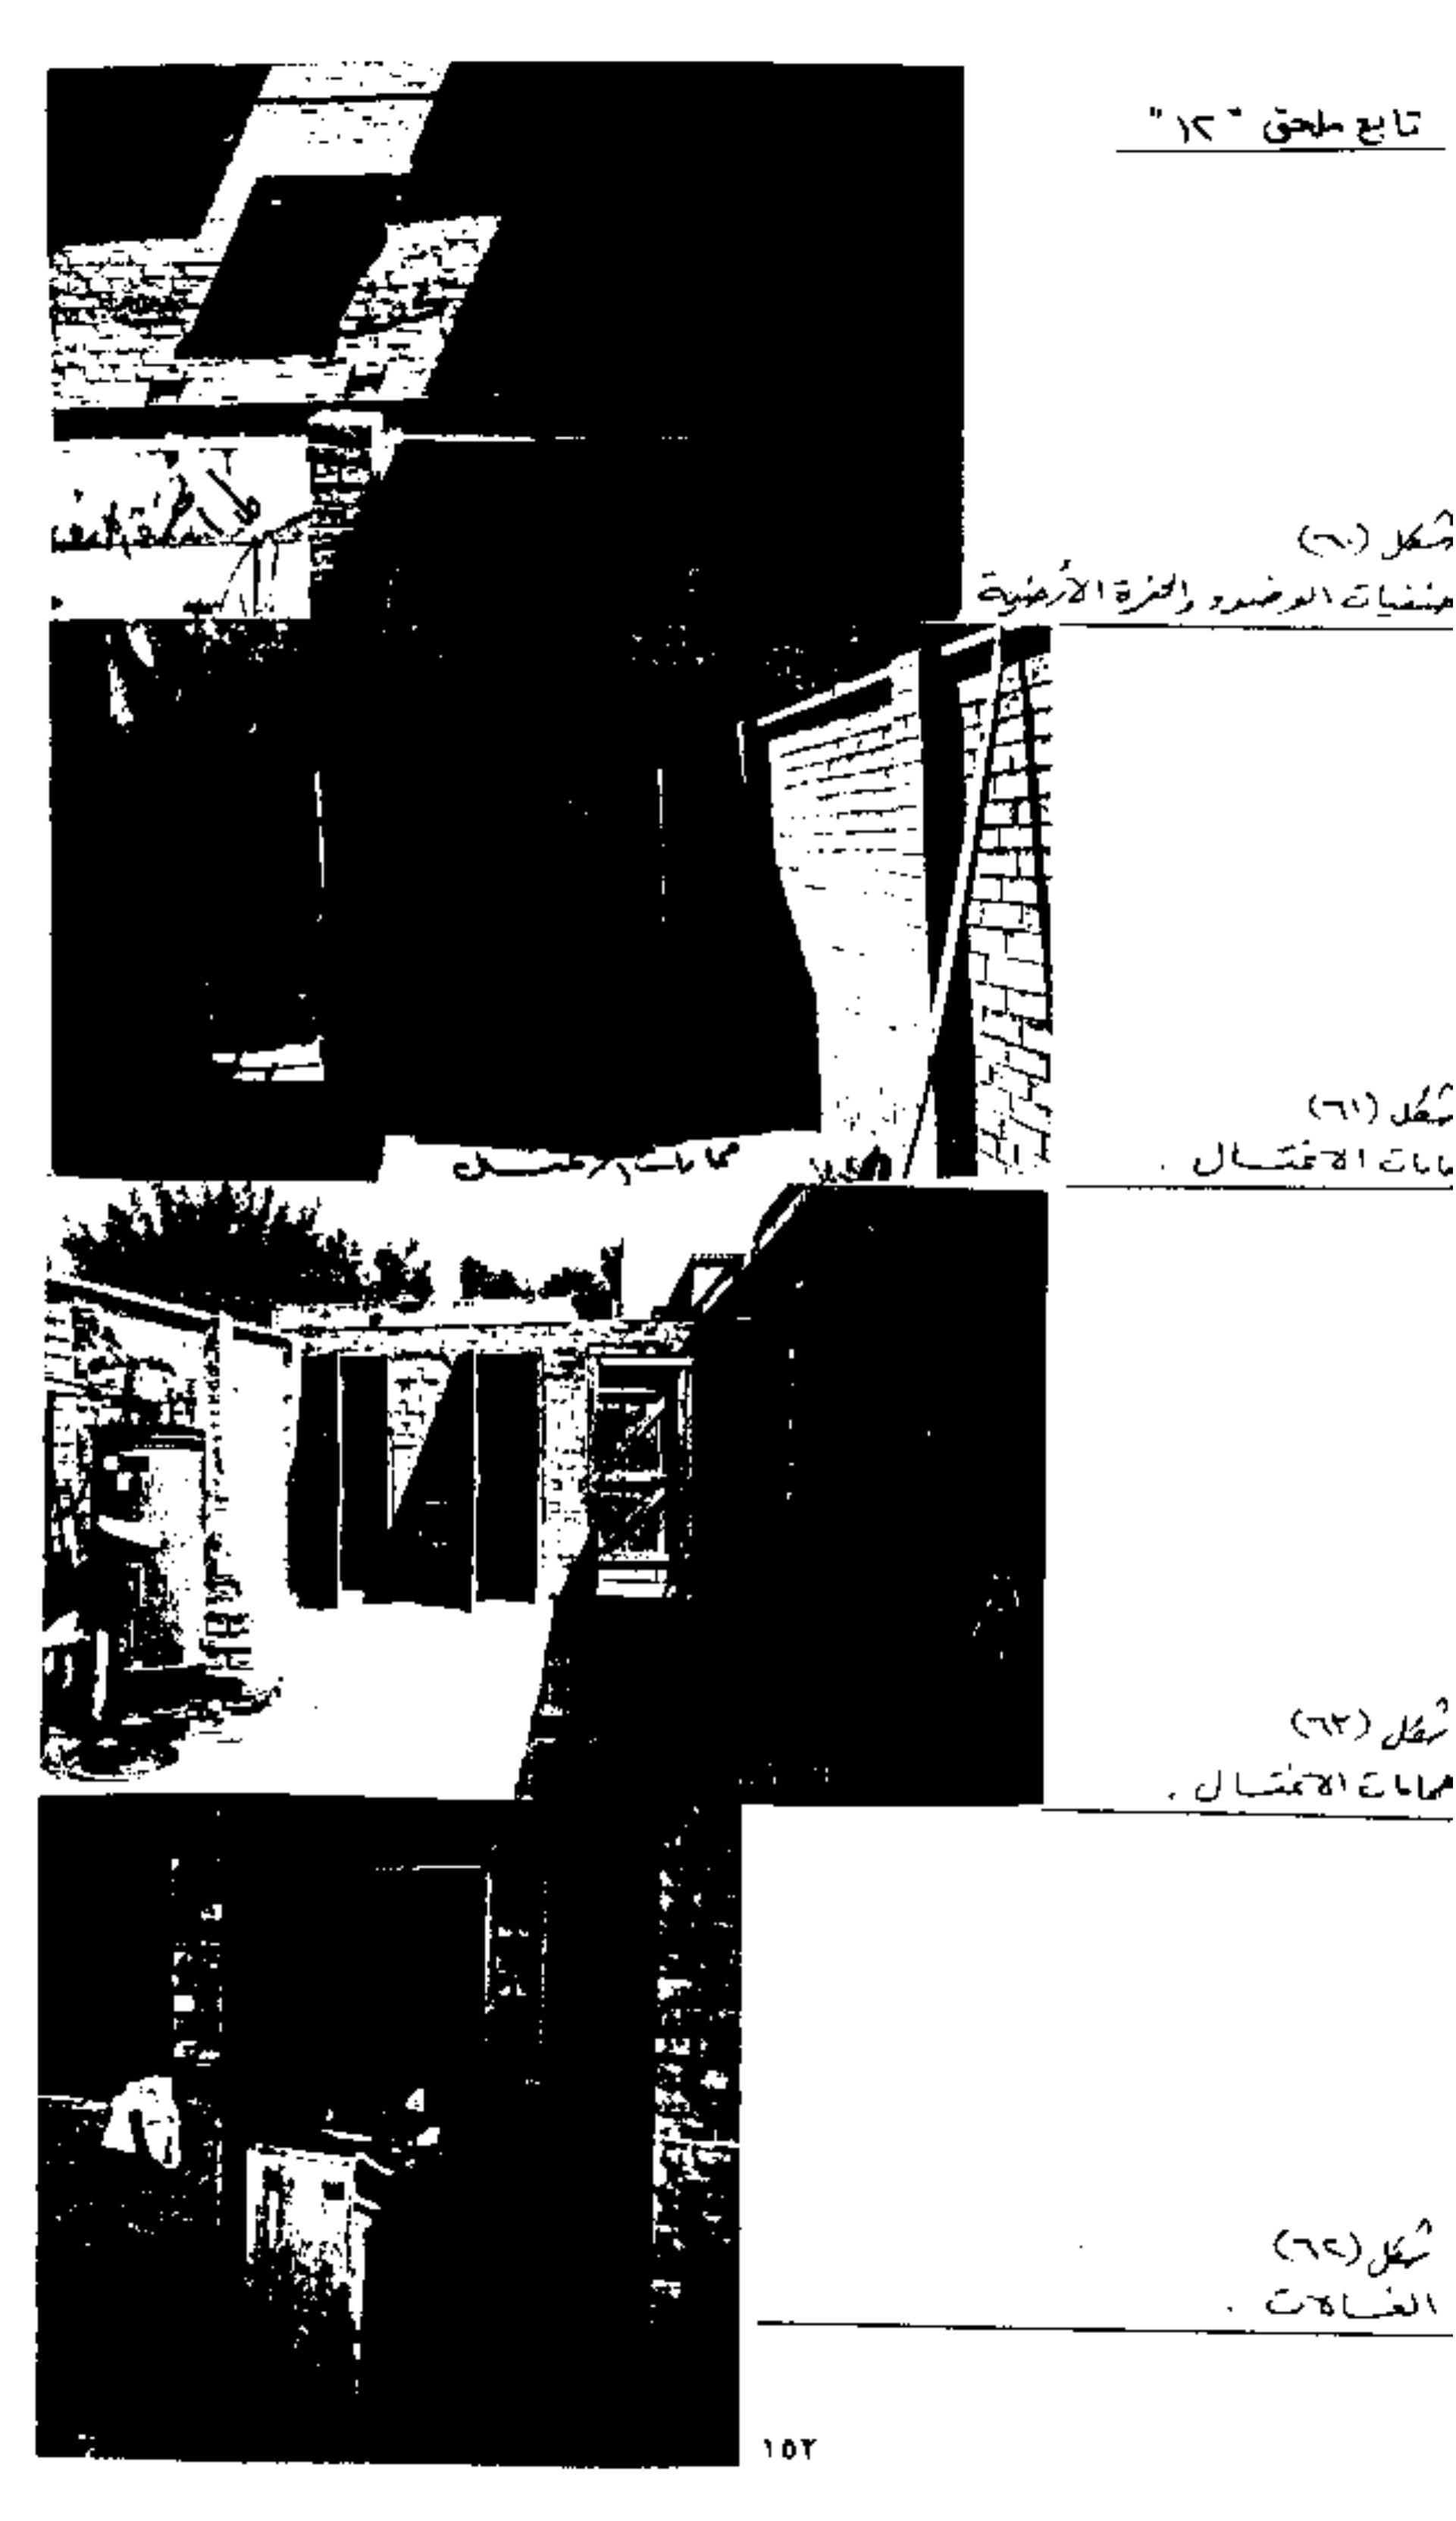 تابع ملحق "١٢"
شكل (٦٠)
حنفيات الوضوء الأرضية
شكل (٦١)
حمامات الاغتسال .
شكل (٦٣)
حمامات الاغتسال .
شكل (٦٢)
الغسالات .
١٥٢